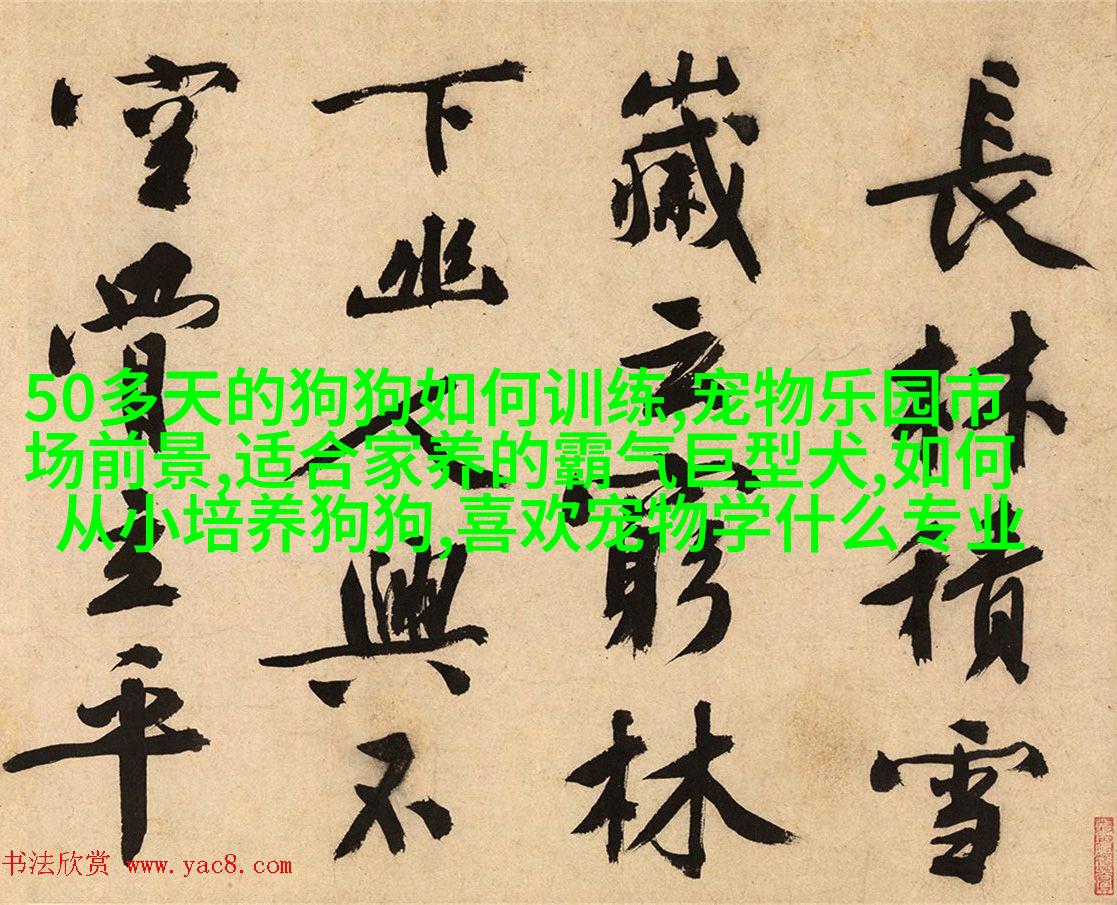 長林積雪
歲云窮林
下幽人興不
空賞平
50多天的狗狗如何训练,宠物乐园市
场前景,适合家养的霸气巨型犬,如何
从小培养狗狗,喜欢宠物学什么专业
书法欣赏 www.yac8.com